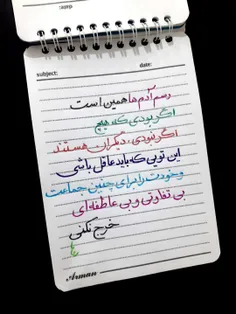 subject:
date:
رسم آدم ها همین است
اگر بودی که هیچ
اگر نبودی، دیگران هستند
این تویی که باید عاقل باشی
و خودت را برای چنین جماعت
بی تفاوتی و بی عاطفه ای
خرج نکنی
Arman